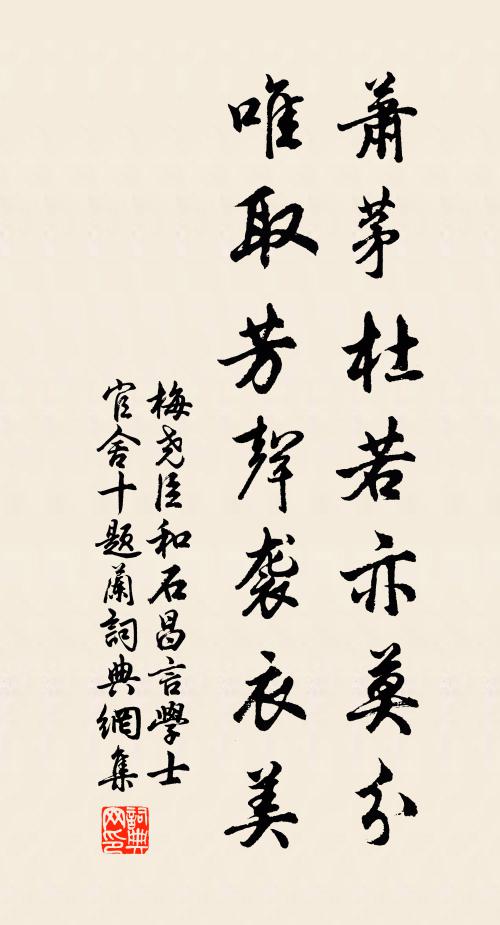 蕭茅杜若亦莫分
唯取芳聲袭衣美
梅尧臣和石昌言學士
官舍十題蘭詞典網集
詞典
网印